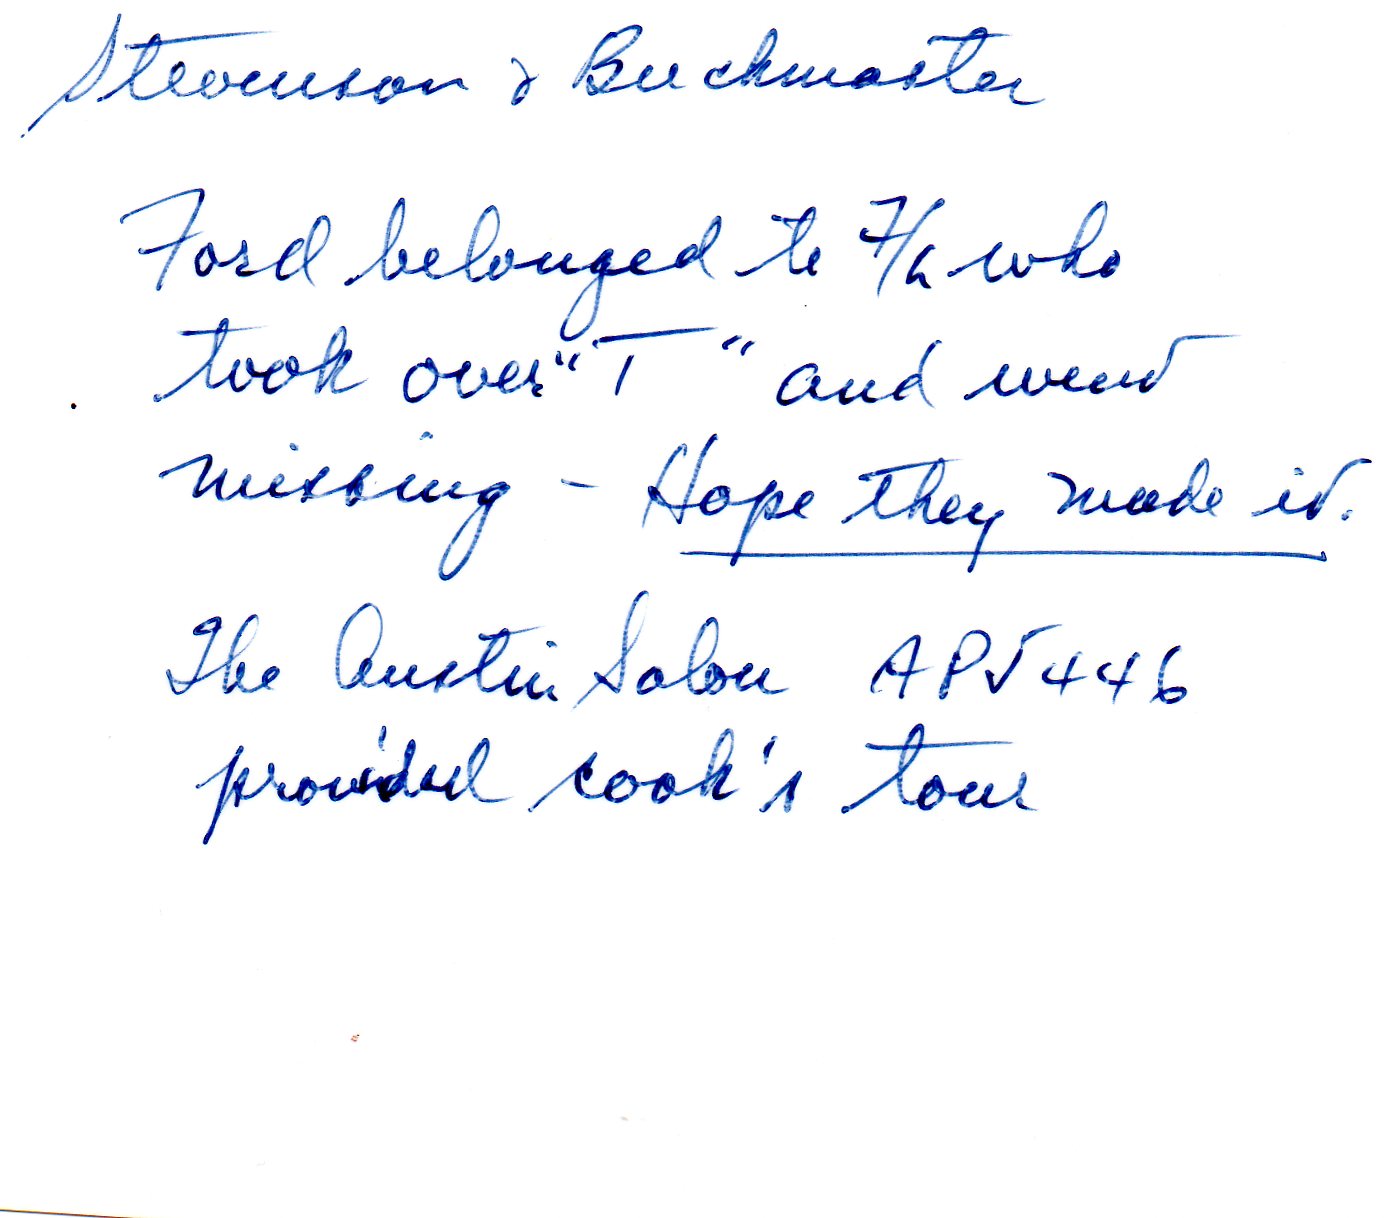 Stevenson & Buckmaster
Ford belonged to F/L who
took over "T" and went
missing - Hope they made it.
The Austin Salon APV 446
provided cook's tour